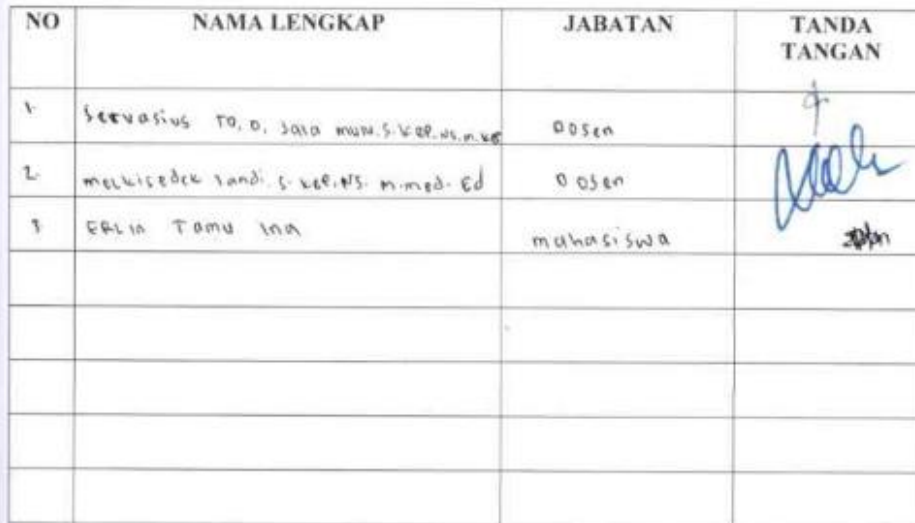 NO NAMA LENGKAP JABATAN TANDA
TANGAN
1. Servasius To,o, Jala mun.S.Kep.Ns.M.Kep Dosen
2. melkisedek landi. S.kep.NS. M.med. Ed Dosen
3 ERLIN Tamu Ina mahasiswa